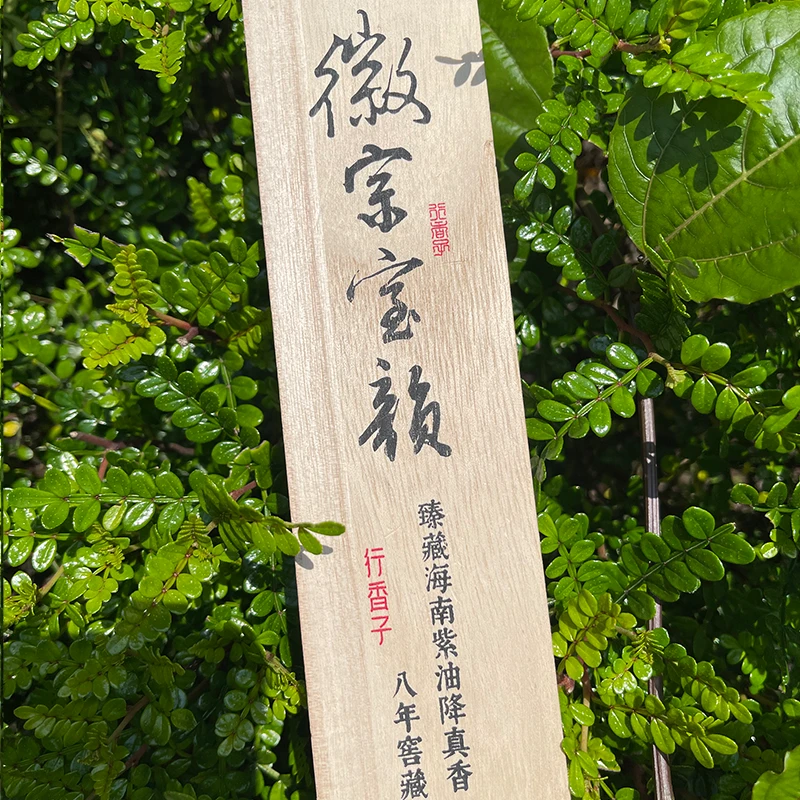 徽宗宝韻
行香子
臻藏海南紫油降真香
八年窖藏
行香子